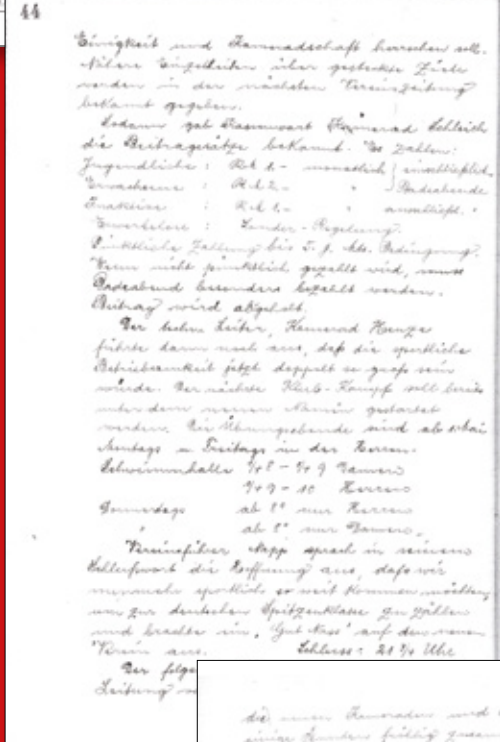 44
Einigkeit und Kameradschaft herrschen soll.
Nähere Einzelheiten über gesteckte Ziele
werden in der nächsten Vereinszeitung
bekannt gegeben.
Sodann gab Kassenwart Kamerad Schleich
die Beitragssätze bekannt. Es zahlen:
Jugendliche : R.M. 1.- monatlich
Erwachsene : R.M. 2.- " Badeabende
Inaktive : R.M. 1.- "
Erwerbslose : Sonder-Regelung.
Pünktliche Zahlung bis 5. j. Mts. Bedingung.
Wenn nicht pünktlich gezahlt wird, muss
Badeabend besonders bezahlt werden.
Beitrag wird abgeholt.
Der techn. Leiter, Kamerad Henze
führte dann noch aus, daß die sportliche
Betriebsamkeit jetzt doppelt so groß sein
würde. Der nächste Klub-Kampf soll bereits
unter dem neuen Namen gestartet
werden. Die Übungsabende sind ab
Montags u Freitags in der Herren-
Schwimmhalle 3/4 8 - 3/4 9 Damen
3/4 9 - 10 Herren
Donnerstags ab 8° nur Herren
ab 8° nur Damen.
Vereinsführer Napp sprach in seinem
Schlußwort die Hoffnung aus, daß wir
nunmehr sportlich so weit kommen möchten,
um zur deutschen Spitzenklasse zu zählen
und brachte ein "Gut Nass" auf den neuen
Verein aus. Schluss: 21 3/4 Uhr
Der folge
Leitung
die neuen Kameraden und
einige Stunden fröhlich